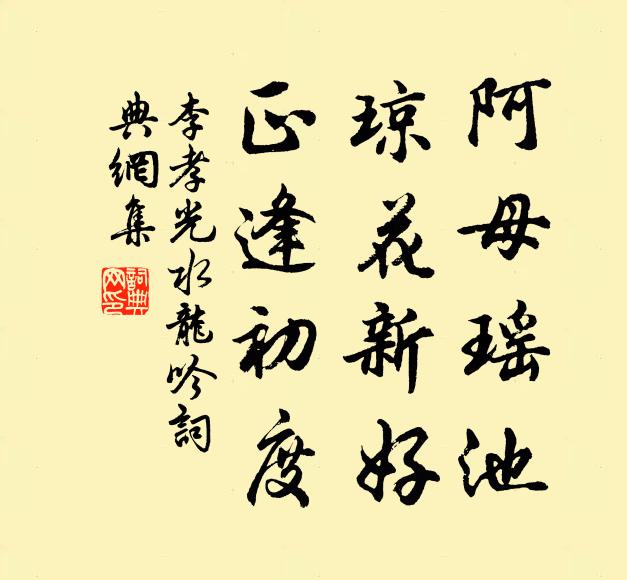 阿母瑶池
琼花新好
正逢初度
李孝光水龍吟詞
典網集
詞典网印